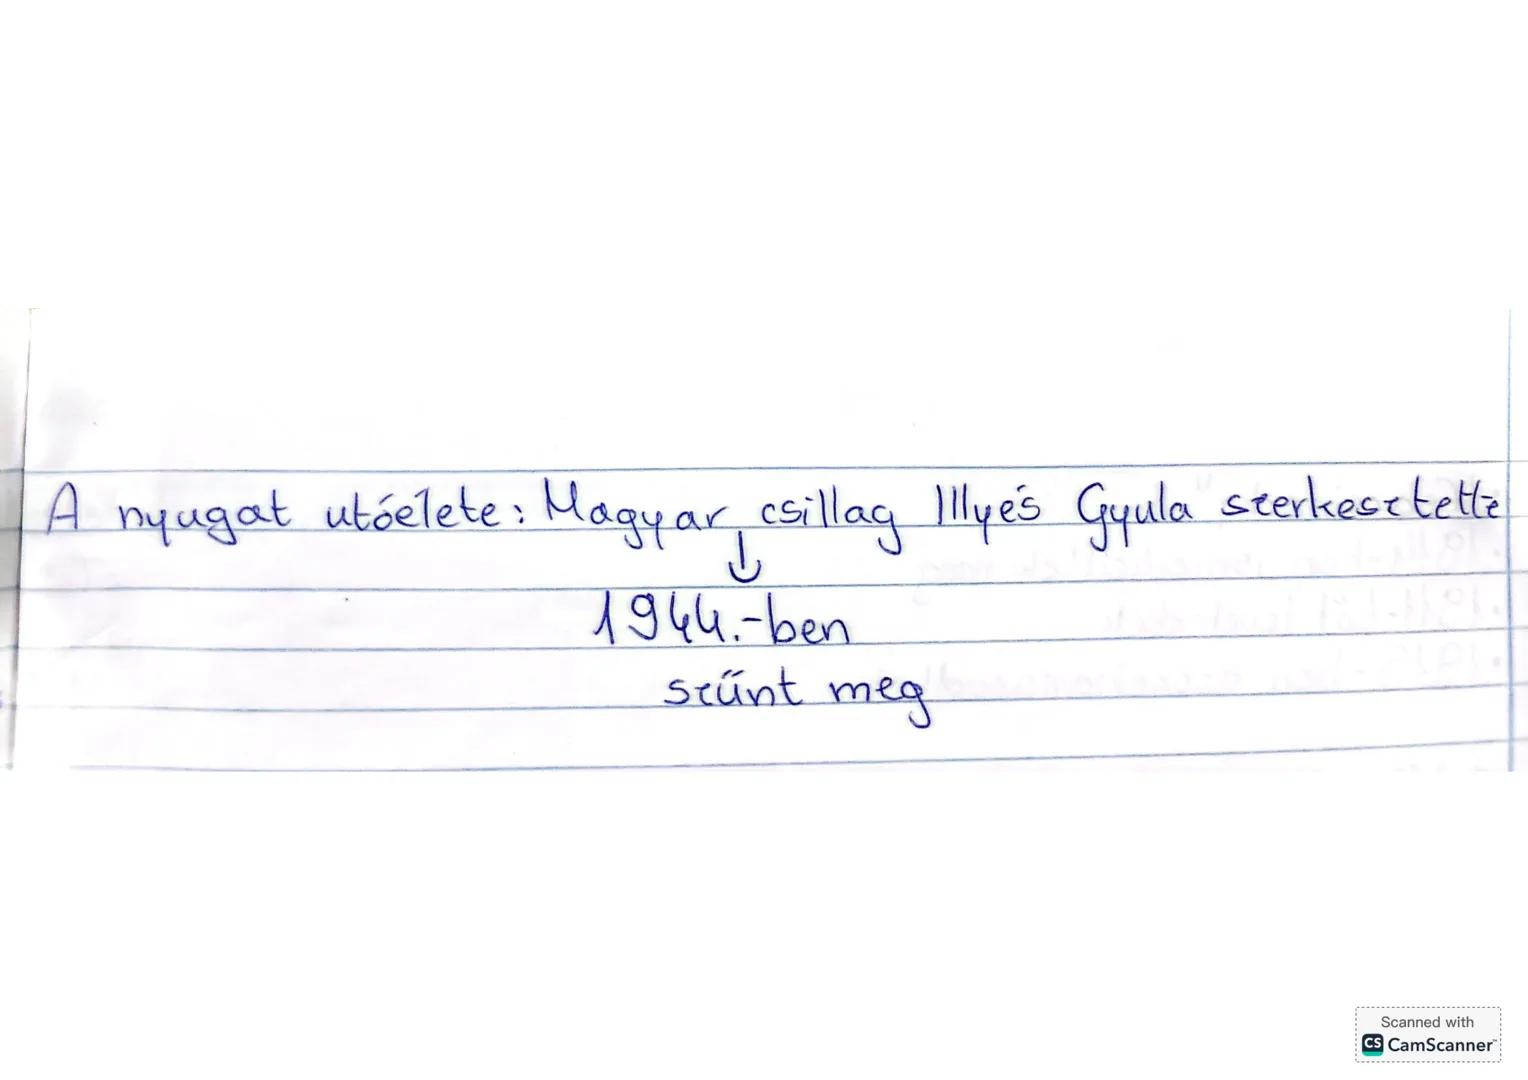 A nyugat utóélete: Magyar csillag Illyés Gyula szerkesztette
↓
1944.-ben
szűnt meg
Scanned with
CS CamScanner